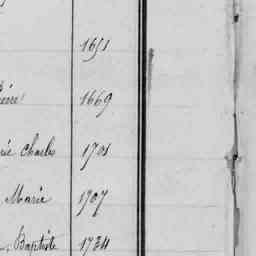 1651
1669
rie Charles 1701
Marie 1707
Baptiste 1734